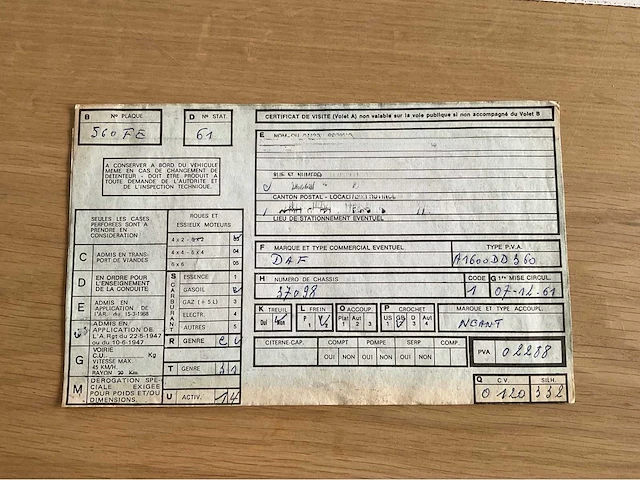 B N° PLAQUE
560 FE
D N° STAT.
61
CERTIFICAT DE VISITE (Volet A) non valable sur la voie publique si non accompagné du Volet B
A CONSERVER A BORD DU VÉHICULE
MEME EN CAS DE CHANGEMENT DE
DÉTENTEUR - DOIT ÊTRE PRODUIT A
TOUTE DEMANDE DE L'AUTORITÉ ET
DE L'INSPECTION TECHNIQUE.
E
RUE ET NUMÉRO
CANTON POSTAL - LOCALITÉ
LIEU DE STATIONNEMENT ÉVENTUEL
SEULES LES CASES
PERFORÉES SONT A
PRENDRE EN
CONSIDÉRATION
ROUES ET
ESSIEUX MOTEURS
4 x 2 - 6 x 2 03
4 x 4 - 6 x 4 04
6 x 6 05
C ADMIS EN TRANS-
PORT DE VIANDES
D EN ORDRE POUR
L'ENSEIGNEMENT
DE LA CONDUITE
E ADMIS EN
APPLICATION DE
L'AR. du 15-3-1968
ADMIS EN
APPLICATION DE
L'A.Rgt du 22-5-1947
ou du 10-6-1947
G VOIRIE
C.U. Kg
VITESSE MAX.
45 KM/H.
RAYON Km
M DÉROGATION SPÉ-
CIALE EXIGÉE
POUR POIDS ET/OU
DIMENSIONS.
S CARBURANT
ESSENCE 1
GASOIL 2
GAZ (+ 5 L) 3
ELECTR. 4
AUTRES 5
R GENRE
T GENRE 31
U ACTIV. 14
F MARQUE ET TYPE COMMERCIAL ÉVENTUEL
DAF
TYPE P.V.A.
A1600DD360
H NUMÉRO DE CHASSIS
37098
CODE
1
G 1re MISE CIRCUL.
07-12-61
K TREUIL
Oui Non
L FREIN
O ACCOUP
Plat Aut
1 2 3
P CROCHET
US GB D Aut
1 2 3 4
MARQUE ET TYPE ACCOUPL.
NEANT
CITERNE CAP.
COMPT
OUI NON
POMPE
OUI NON
SERP
OUI NON
COMP.
PVA 02288
Q C.V.
0120
SILH.
332